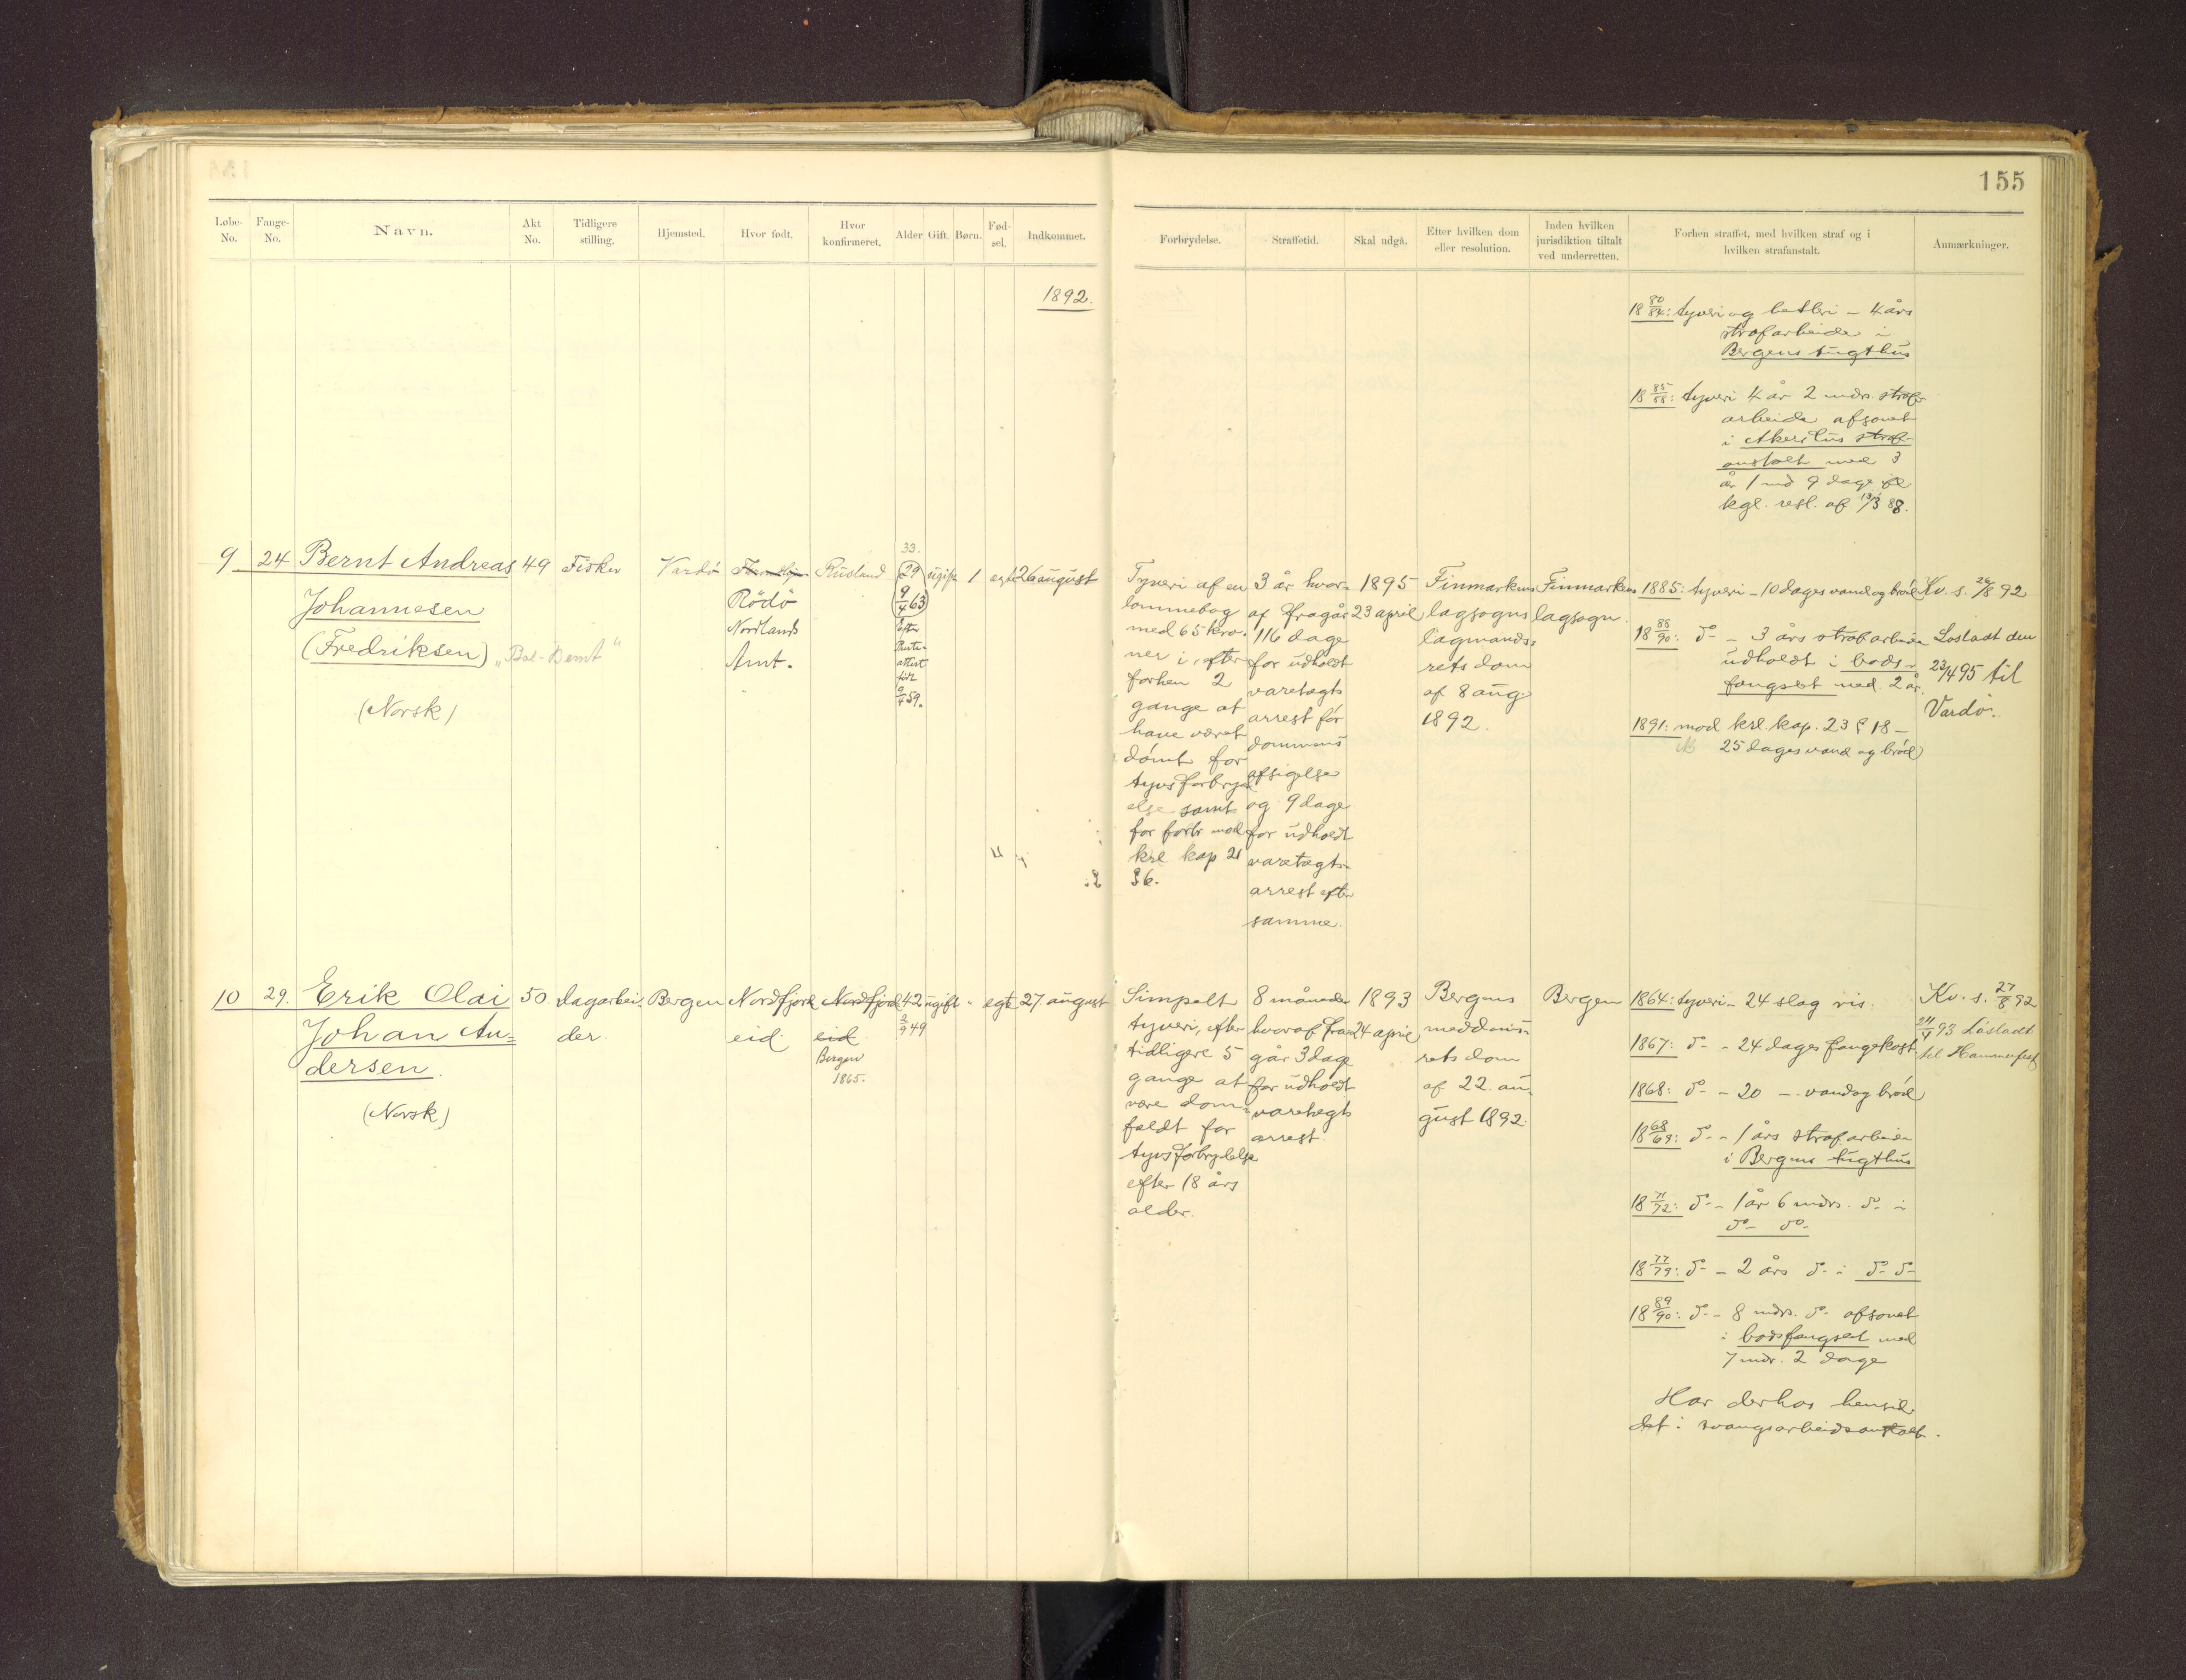 155
Løbe-No.
Fange-No.
Navn.
Akt No.
Tidligere stilling.
Hjemsted.
Hvor født.
Hvor konfirmeret.
Alder
Gift.
Børn.
Fød-sel.
Indkommet.
Forbrydelse.
Straffetid.
Skal udgå.
Efter hvilken dom eller resolution.
Inden hvilken jurisdiktion tiltalt ved underretten.
Forhen straffet, med hvilken straf og i hvilken strafanstalt.
Anmærkninger.
1892.
18 80/84: tyveri og betleri – 4 års
strafarbeide i
Bergens tugthus
18 85/88: tyveri 4 år 2 mdrs. straf-
arbeide afsonet
i Akershus straf-
anstalt med 3
år 1 md 9 dage
kgl. resl. af 13/3 88.
9
24
Bernt Andreas
Johannesen
(Fredriksen) „Bal-Bernt“
(Norsk)
49
Fisker
Vardø
Rödö
Nordlands
Amt.
Rusland
33.
(29
9/4 63)
Efter
attest
født
9/4 59.
ugift
1
egte
26 august
Tyveri af en
lommebog
med 65 kro-
ner i, efter
forhen 2
gange at
have været
dømt for
tyvsforbryd-
else samt
for forbr mod
krl kap 21
§6.
3 år hvor-
af fragår
116 dage
for udholdt
varetægts
arrest før
dommens
afsigelse
og 9 dage
for udholdt
varetægts-
arrest efter
samme.
1895
23 april
Finmarkens
lagsogns
lagmands-
rets dom
af 8 aug.
1892.
Finmarkens
lagsogn
1885: tyveri – 10 dages vand og brød
18 88/90: do – 3 års strafarbeide
udholdt i bods-
fængslet med 2 år.
1891: mod krl. kap. 23 § 18 –
25 dages vand og brød
Kv. s. 26/8 92
Løsladt den
23/4 95 til
Vardø.
10
29.
Erik Olai
Johan An-
dersen.
(Norsk)
50
dagarbei-
der
Bergen
Nordfjord
eid
Nordfjord
eid
Bergen
1865.
42
2/9 49
ugift
-
egte
27. august
Simpelt
tyveri, efter
tidligere 5
gange at
være dom-
fældt for
tyvsforbrydelse
efter 18 års
alder.
8 måneder
hvoraf fra-
går 3 dage
for udholdt
varetægts
arrest.
1893
24 april
Bergens
meddoms-
rets dom
af 22. au-
gust 1892.
Bergen
1864: tyveri – 24 slag ris.
1867: do – 24 dages fangekost.
1868: do – 20 – vand og brød
18 68/69: do – 1 års strafarbeide
i Bergens tugthus
18 71/72: do – 1 år 6 mdrs. do i
do do
18 77/79: do – 2 års do i do do
18 89/90: do – 8 mdrs. do afsonet
i bodsfængslet med
7 mdr. 2 dage
Har derhos hensid-
det i tvangsarbeidsanstalt.
Kv. s. 27/8 92
24/4 93 Løsladt
til Hammerfest